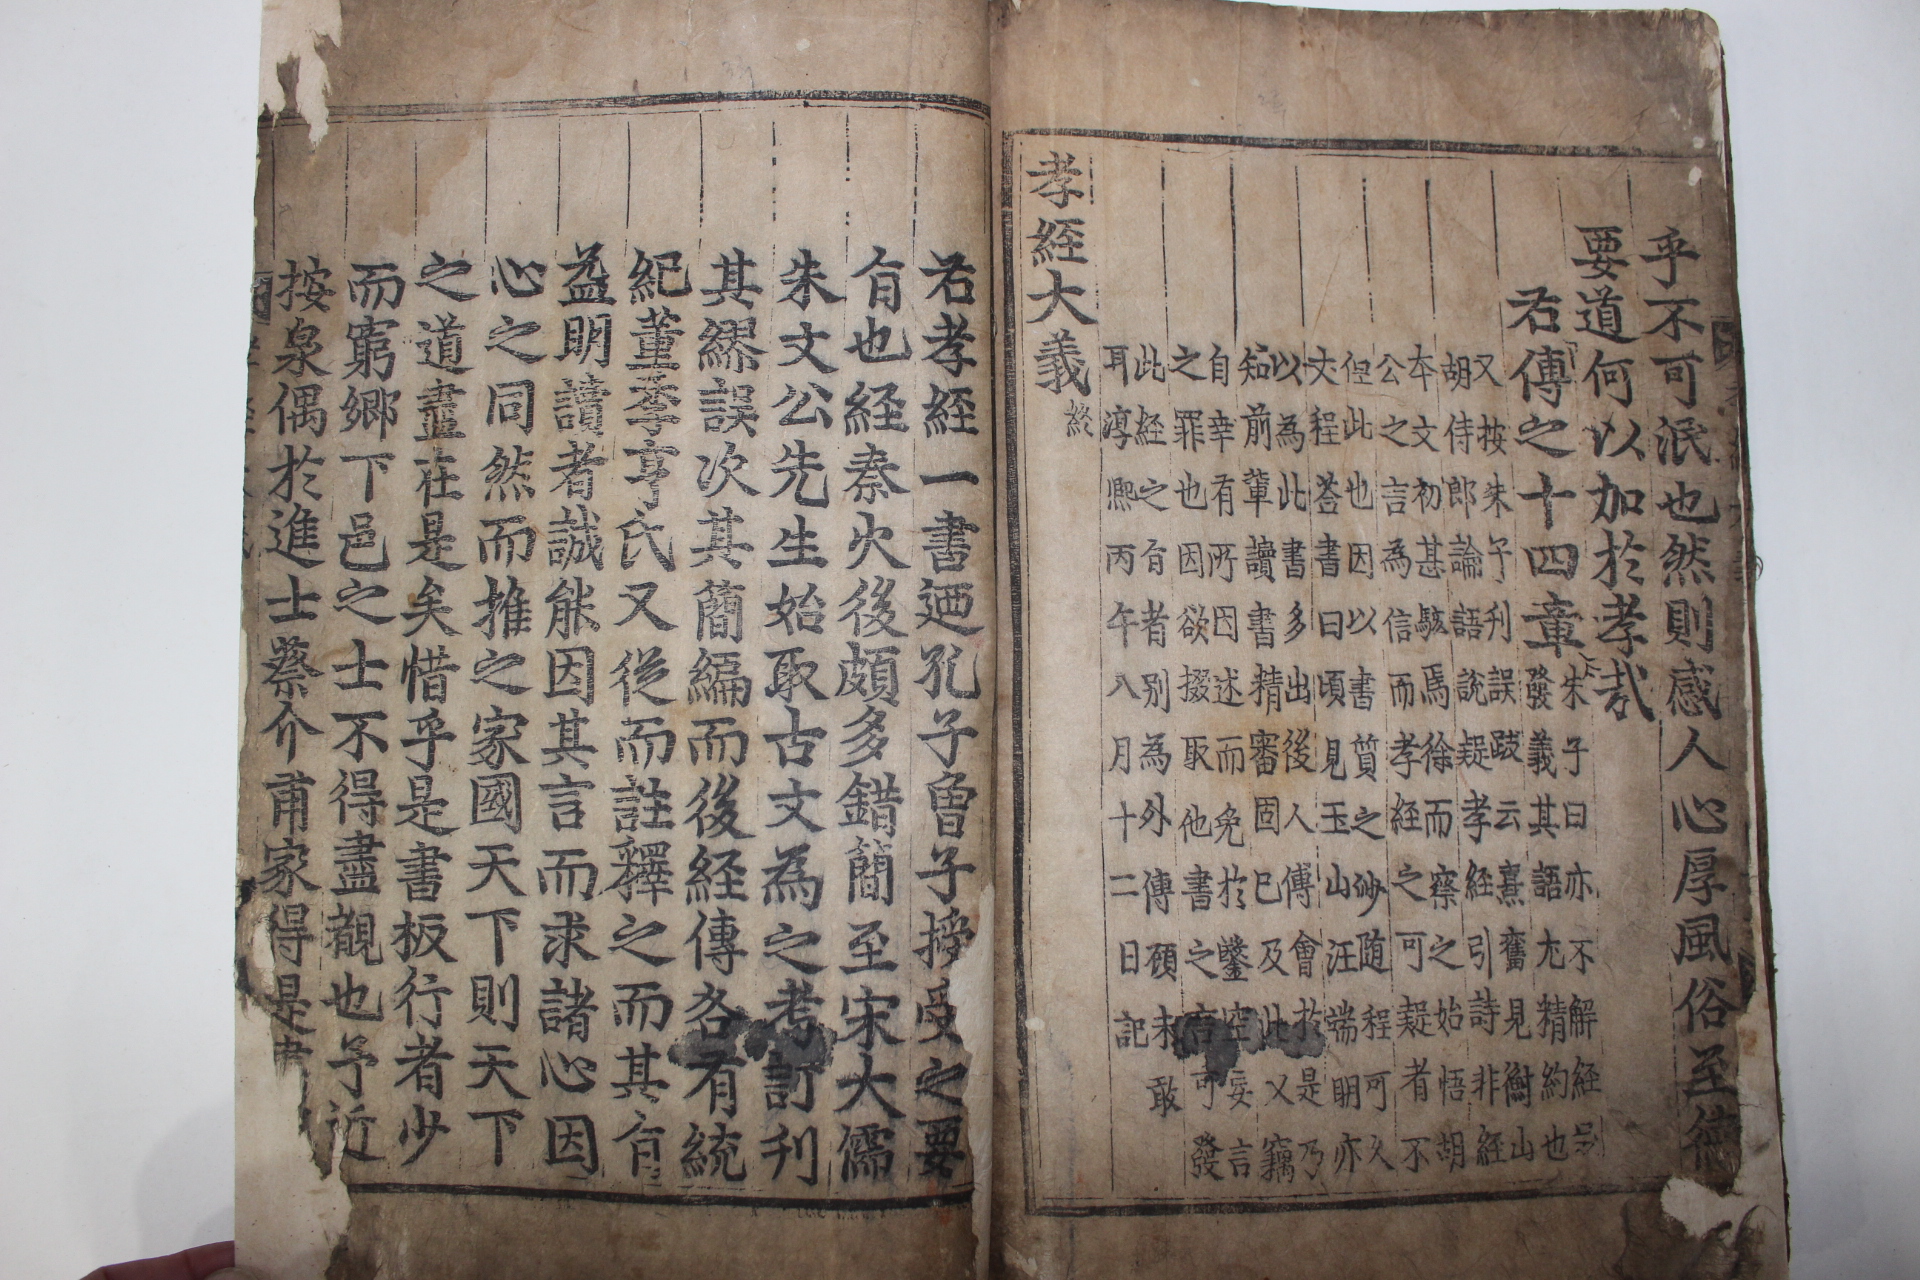 乎不可泯也然則感人心厚風俗至德
要道何以加於孝哉
右傳之十四章
朱子曰亦不解經
發義其語尤精約也
又按朱子刊誤跋云熹舊見衡山
胡侍郎論語說疑孝經引詩非經
本文初甚駭焉徐而察之始悟胡
公之言爲信而孝經之可疑者不
但此也因以書質之沙随程可久
丈程荅書曰頃見玉山汪端明亦
以為此書多出後人傅會於是乃
知前輩讀書精審固已及此又竊
自幸有所因述而免於鑿空妄言
之罪也因欲掇取他書之言可發
此經之旨者別為外傳顧未敢
耳淳熙丙午八月十二日記
孝經大義終
右孝經一書迺孔子曾子授受之要
旨也經秦火後頗多錯簡至宋大儒
朱文公先生始取古文為之考訂刊
其繆誤次其簡編而後經傳各有統
紀董季亨氏又從而註釋之而其旨
益明讀者誠能因其言而求諸心因
心之同然而推之家國天下則天下
之道盡在是矣惜乎是書板行者少
而窮鄉下邑之士不得盡觀也予近
按泉偶於進士蔡介甫家得是書